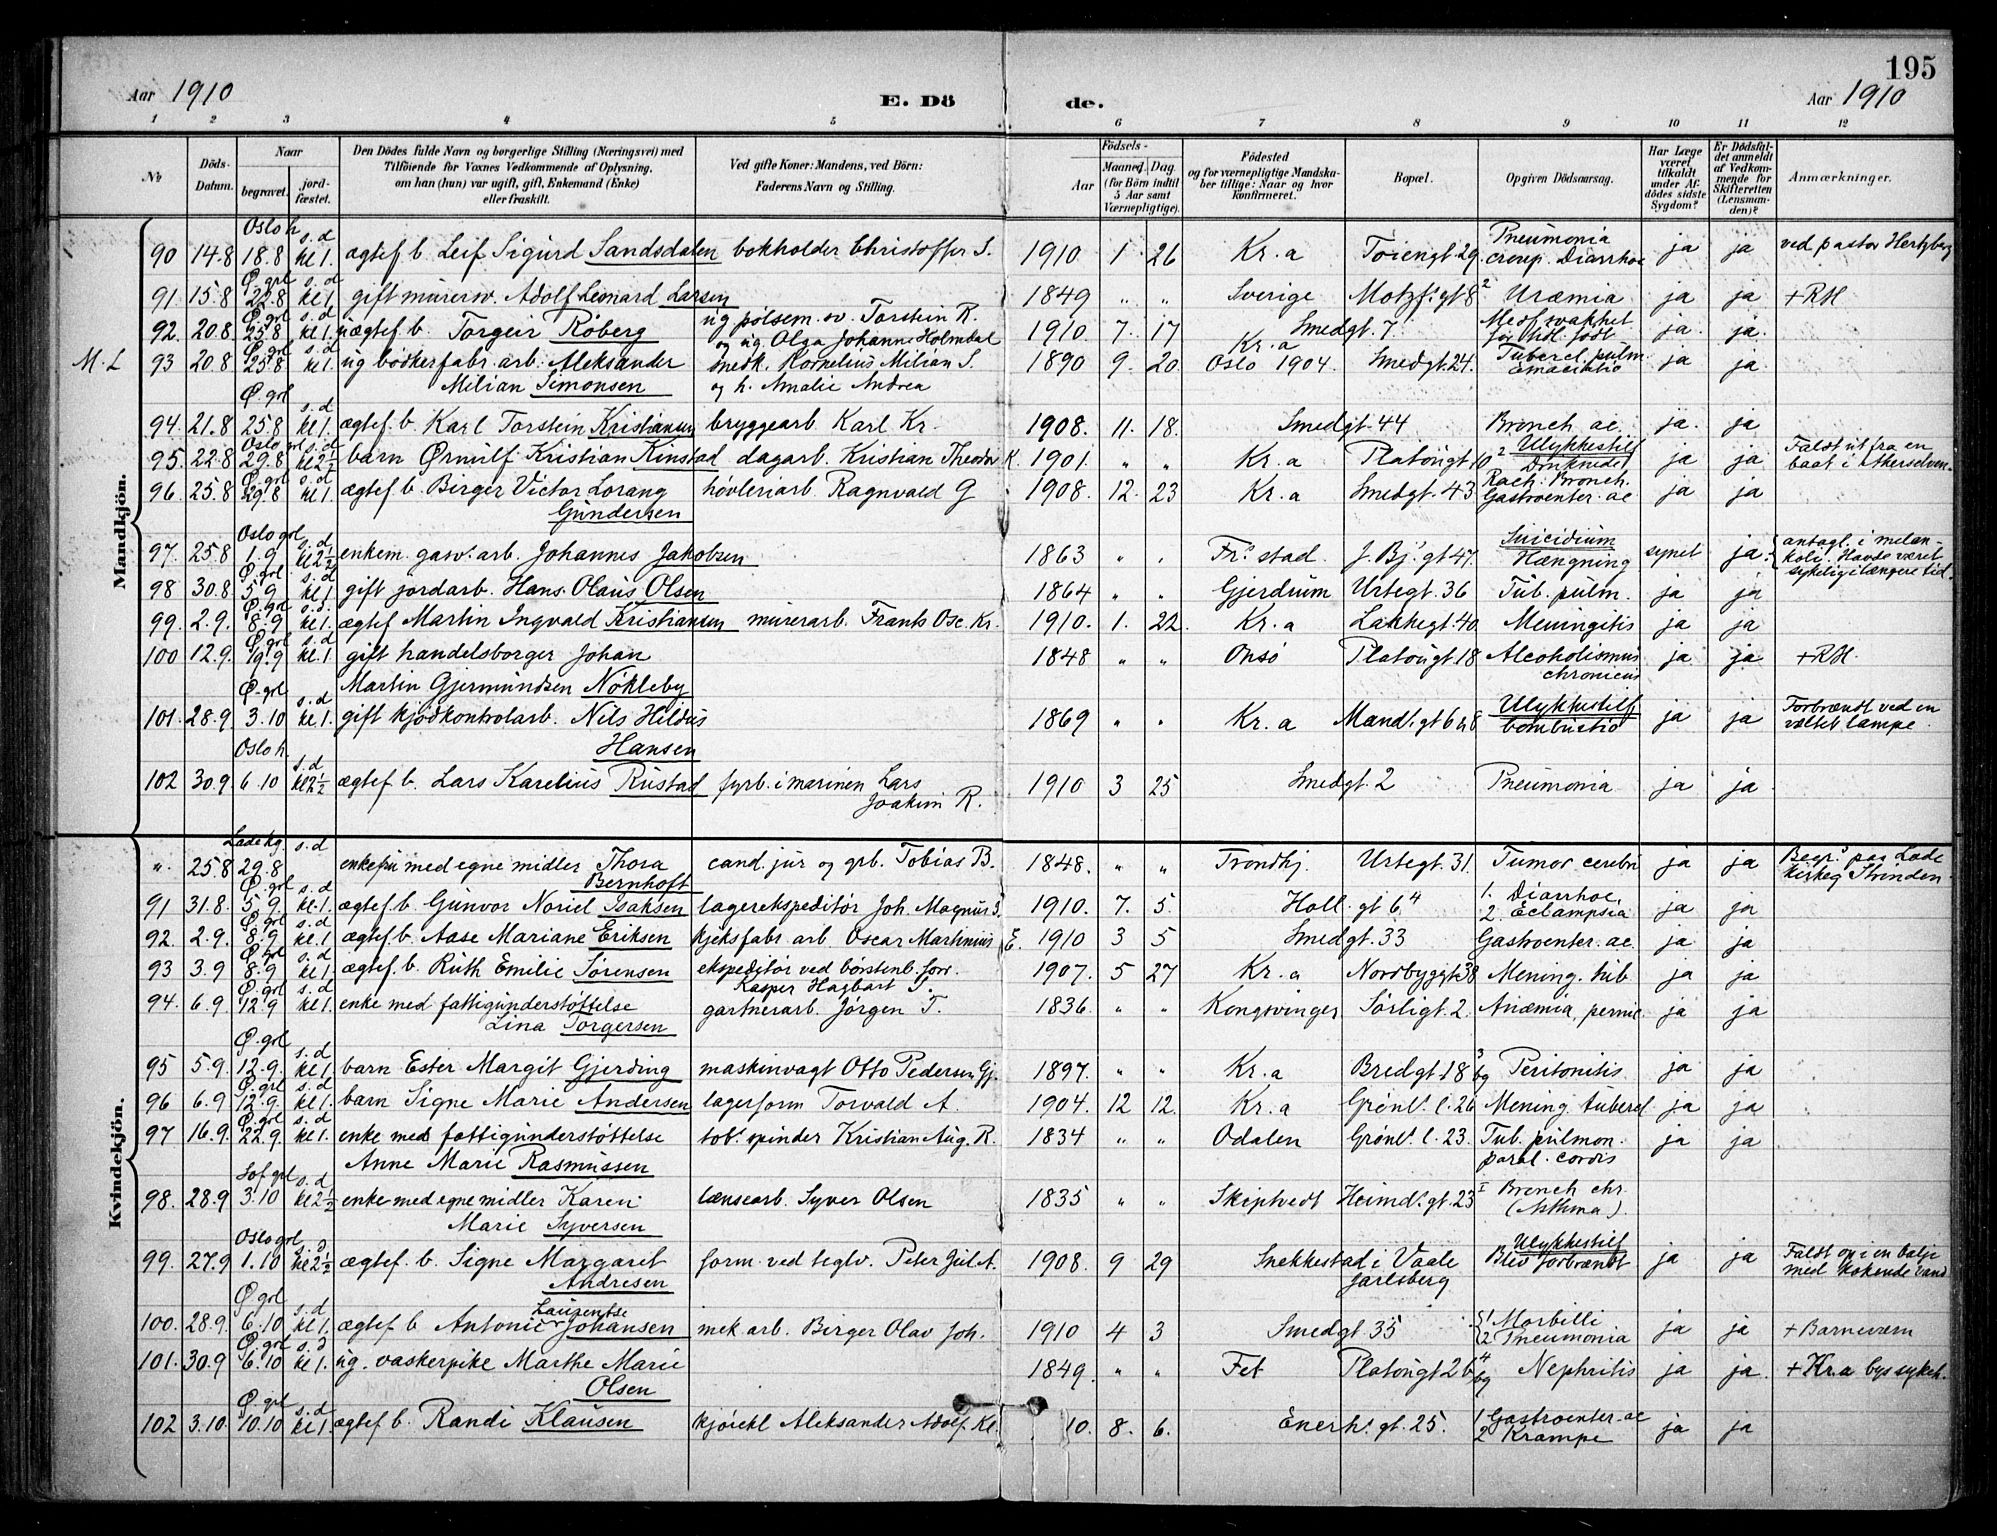 195
Aar 1910 E. Dö de. Aar 1910
1 2 3 4 5 6 7 8 9 10 11 12
No Döds-Datum. Naar begravet. jordfæstet. Den Dödes fulde Navn og borgerlige Stilling (Næringsvei) med Tilföiende for Voxnes Vedkommende af Oplysning, om han (hun) var ugift, gift, Enkemand (Enke) eller fraskilt. Ved gifte Koner: Mandens, ved Börn: Faderens Navn og Stilling. Aar Födsels- Maaned. Dag. (for Börn indtil 5 Aar samt Værnepligtige). Födested og for værnepligtige Mandskaber tillige: Naar og hvor konfirmeret. Bopæl. Opgiven Dödsaarsag. Har Læge været tilkaldt under Afdödes sidste Sygdom? Er Dödsfaldet anmeldt af Vedkommende for Skifteretten (Lensmanden)? Anmærkninger.
Mandkjön.
Oslo h. s.d
90 14.8 18.8 kl 1. ægtef b. Leif Sigurd Sandsdalen bokholder Christoffer S. 1910 1 26 Kr.a Tøiengt. 29 Pneumonia croup. Diarrhoe ja ja ved pastor Hertzberg
Ø. grl s.d
91 15.8 22.8 kl 1. gift murersv. Adolf Leonard Larsen 1849 " " Sverige Motzf. gt 8² Uræmia ja ja + RH
Ø. grl s.d
92. 20.8 25.8 kl 1. uægtef b. Torgeir Røberg ug pølsem. sv. Torstein R. og ug. Olga Johanne Holmdal 1910 7. 17 Smedgt 7 Medf. svakhet for tidl. født ja ja.
Ø. grl s.d
M.L 93 20.8 25.8 kl 1. ug bødkerfabr. arb. Aleksander Milian Simonsen snedk. Kornelius Milian S. og h. Amalie Andrea 1890 9. 20. Kr.a Oslo 1904. Smedgt. 24. Tubercl. pulm. emaciatio ja ja.
Ø. grl s.d
94. 21.8 25.8 kl 1. ægtef. b. Karl Torstein Kristiansen bryggearb. Karl Kr. 1908. 11. 18. Smedgt. 44 Bronch. ac. ja. ja
Oslo grl s.d
95. 22.8 29.8 kl 2½ barn Ørnulf Kristian Kinstad dagarb. Kristian Theodor K. 1901. " " Kr.a Platougt 10² Ulykkestilf Druknede ja ja Faldt ut fra en baat i Akerselven
Ø. grl s.d
96. 25.8 29.8 kl 1. ægtef b. Birger Victor Lorang Gundersen høvleriarb. Ragnvald G 1908. 12. 23 Kr.a Smedgt. 43 Rach. Bronch. Gastroenter. ac ja ja
Oslo grl s.d
97. 25.8 1.9 kl 2½ enkem. gasv. arb. Johannes Jakobsen 1863 " " Fr. stad J. Bj. gt 47. Suicidium Hængning synet ja antagl. i melankoli. Havde været sykelig i længere tid.
Ø. grl s.d
98 30.8 5.9 kl 1 gift jordarb. Hans Olaus Olsen 1864 " " Gjerdrum Urtegt. 36 Tub. pulm. ja ja
Ø. grl s.d.
99. 2.9. 8.9 kl 1. ægtef Martin Ingvald Kristiansen murerarb. Frants Osc. Kr. 1910. 1. 22. Kr.a Lakkegt. 40 Meningitis ja ja
Ø. grl s.d
100 12.9. 19.9 kl. 1 gift handelsborger Johan Martin Gjermundsen Nökleby 1848 " " Onsö Platougt 18 Alcoholismus chronicus ja ja + RH.
Ø. grl s.d
101. 28.9. 3.10 kl 1. gift kjødkontrolarb. Nils Hildus Hansen 1869 " " Kr.a Mandt. gt 6 Ulykkestilf combustio ja ja Forbrændt ved en væltet lampe.
Oslo h. s.d
102 30.9. 6.10 kl 2½ ægtef b. Lars Karelius Rustad fyrb. i marinen Lars Joakim R. 1910 3 25 Smedgt. 2 Pneumonia ja ja
Kvindekjön.
Lade kg. s.d
". 25.8 29.8 enkefru med egne midler Thora Bernhoft cand. jur og grb. Tobias B. 1848. " " Trondhj. Urtegt. 31. Tumor cerebri ja ja Begr. paa Lade kirkeg Strinden
Ø. grl s.d
91 31.8. 5.9 kl. 1. ægtef. b. Gunvor Noriel Isaksen lagerekspeditör Joh. Magnus I. 1910. 7. 5. Holl. gt 6⁴ 1. Diarrhoe, 2 Eclampsia ja ja
Ø. grl s.d
92. 2.9. 8.9 kl. 1 ægtef b. Aase Mariane Eriksen kjeksfabr. arb. Oscar Martinius E. 1910 3 5 Smedgt. 33 Gastroenter. ac. ja ja
Ø. grl s.d
93 3.9 8.9 kl 1. ægtef b. Ruth Emilie Sørensen ekspeditör ved börstenb. forr. Kasper Hagbart S. 1907. 5 27 Kr.a Nordbygt 38 Mening. tub ja ja
Ø. grl s.d
94. 6.9. 12.9 kl 1. enke med fattigunderstøttelse Lina Torgersen gartnerarb. Jörgen T. 1836. " " Kongsvinger Sørligt. 2. Anæmia, pernic ja ja
Ø. grl s.d
95 5.9. 12.9. kl 1. barn Ester Margit Gjerding maskinvagt Otto Pedersen Gj. 1897. " " Kr.a Bredgt. 18 ³ bg Peritonitis ja ja
Ø. grl s.d
96 6.9 12.9. kl 1. barn Signe Marie Andersen lagerform Torvald A. 1904. 12 12. Kr.a Grønl. l. 26 Mening. tubercl ja ja
Ø. grl s.d
97 16.9. 22.9 kl 1. enke med fattigunderstøttelse Anne Marie Rasmussen tob. spinder Kristian Aug. R. 1834 " " Odalen Grønl. l. 23. Tub. pulmon. paral. cordis ja ja
Sof. grl s.d
98. 28.9 3.10 kl 2½ enke med egne midler Karen Marie Syversen lænsearb. Syver Olsen 1835 " " Skiptvedt Heimd. gt. 23 Bronch chr. (Asthma).
Oslo grl s.d
99. 27.9 1.10 kl 2½ ægtef. b. Signe Margaret Andresen form. ved teglv. Peter Jul. A. 1908. 9 29 Snekkestad i Vaale Jarlsberg Ulykkestilf Blev forbrændt ja ja Faldt op i en balje med kokende vand
Ø. grl s.d
100. 28.9. 6.10 kl 1. ægtef b Antonie Laurentse Johansen mek. arb. Birger Olav Joh. 1910 4 3 Smedgt 35 1 Morbilli 2 Pneumonia ja ja + Barnevern
Ø. grl s.d
101. 30.9 6.10 kl 1. ug. vaskerpike Marthe Marie Olsen 1849. " " Fet Platougt 26 ⁴ bg Nephritis ja ja + Kra bys sykeh.
Ø. grl s.d
102 3.10. 10.10 kl 1 ægtef b. Randi Klausen kjörekl Aleksander Adolf Kl. 10. 8. 6. Enerh. gt. 25. 1 Gastroenter. ac 2 Krampe ja ja